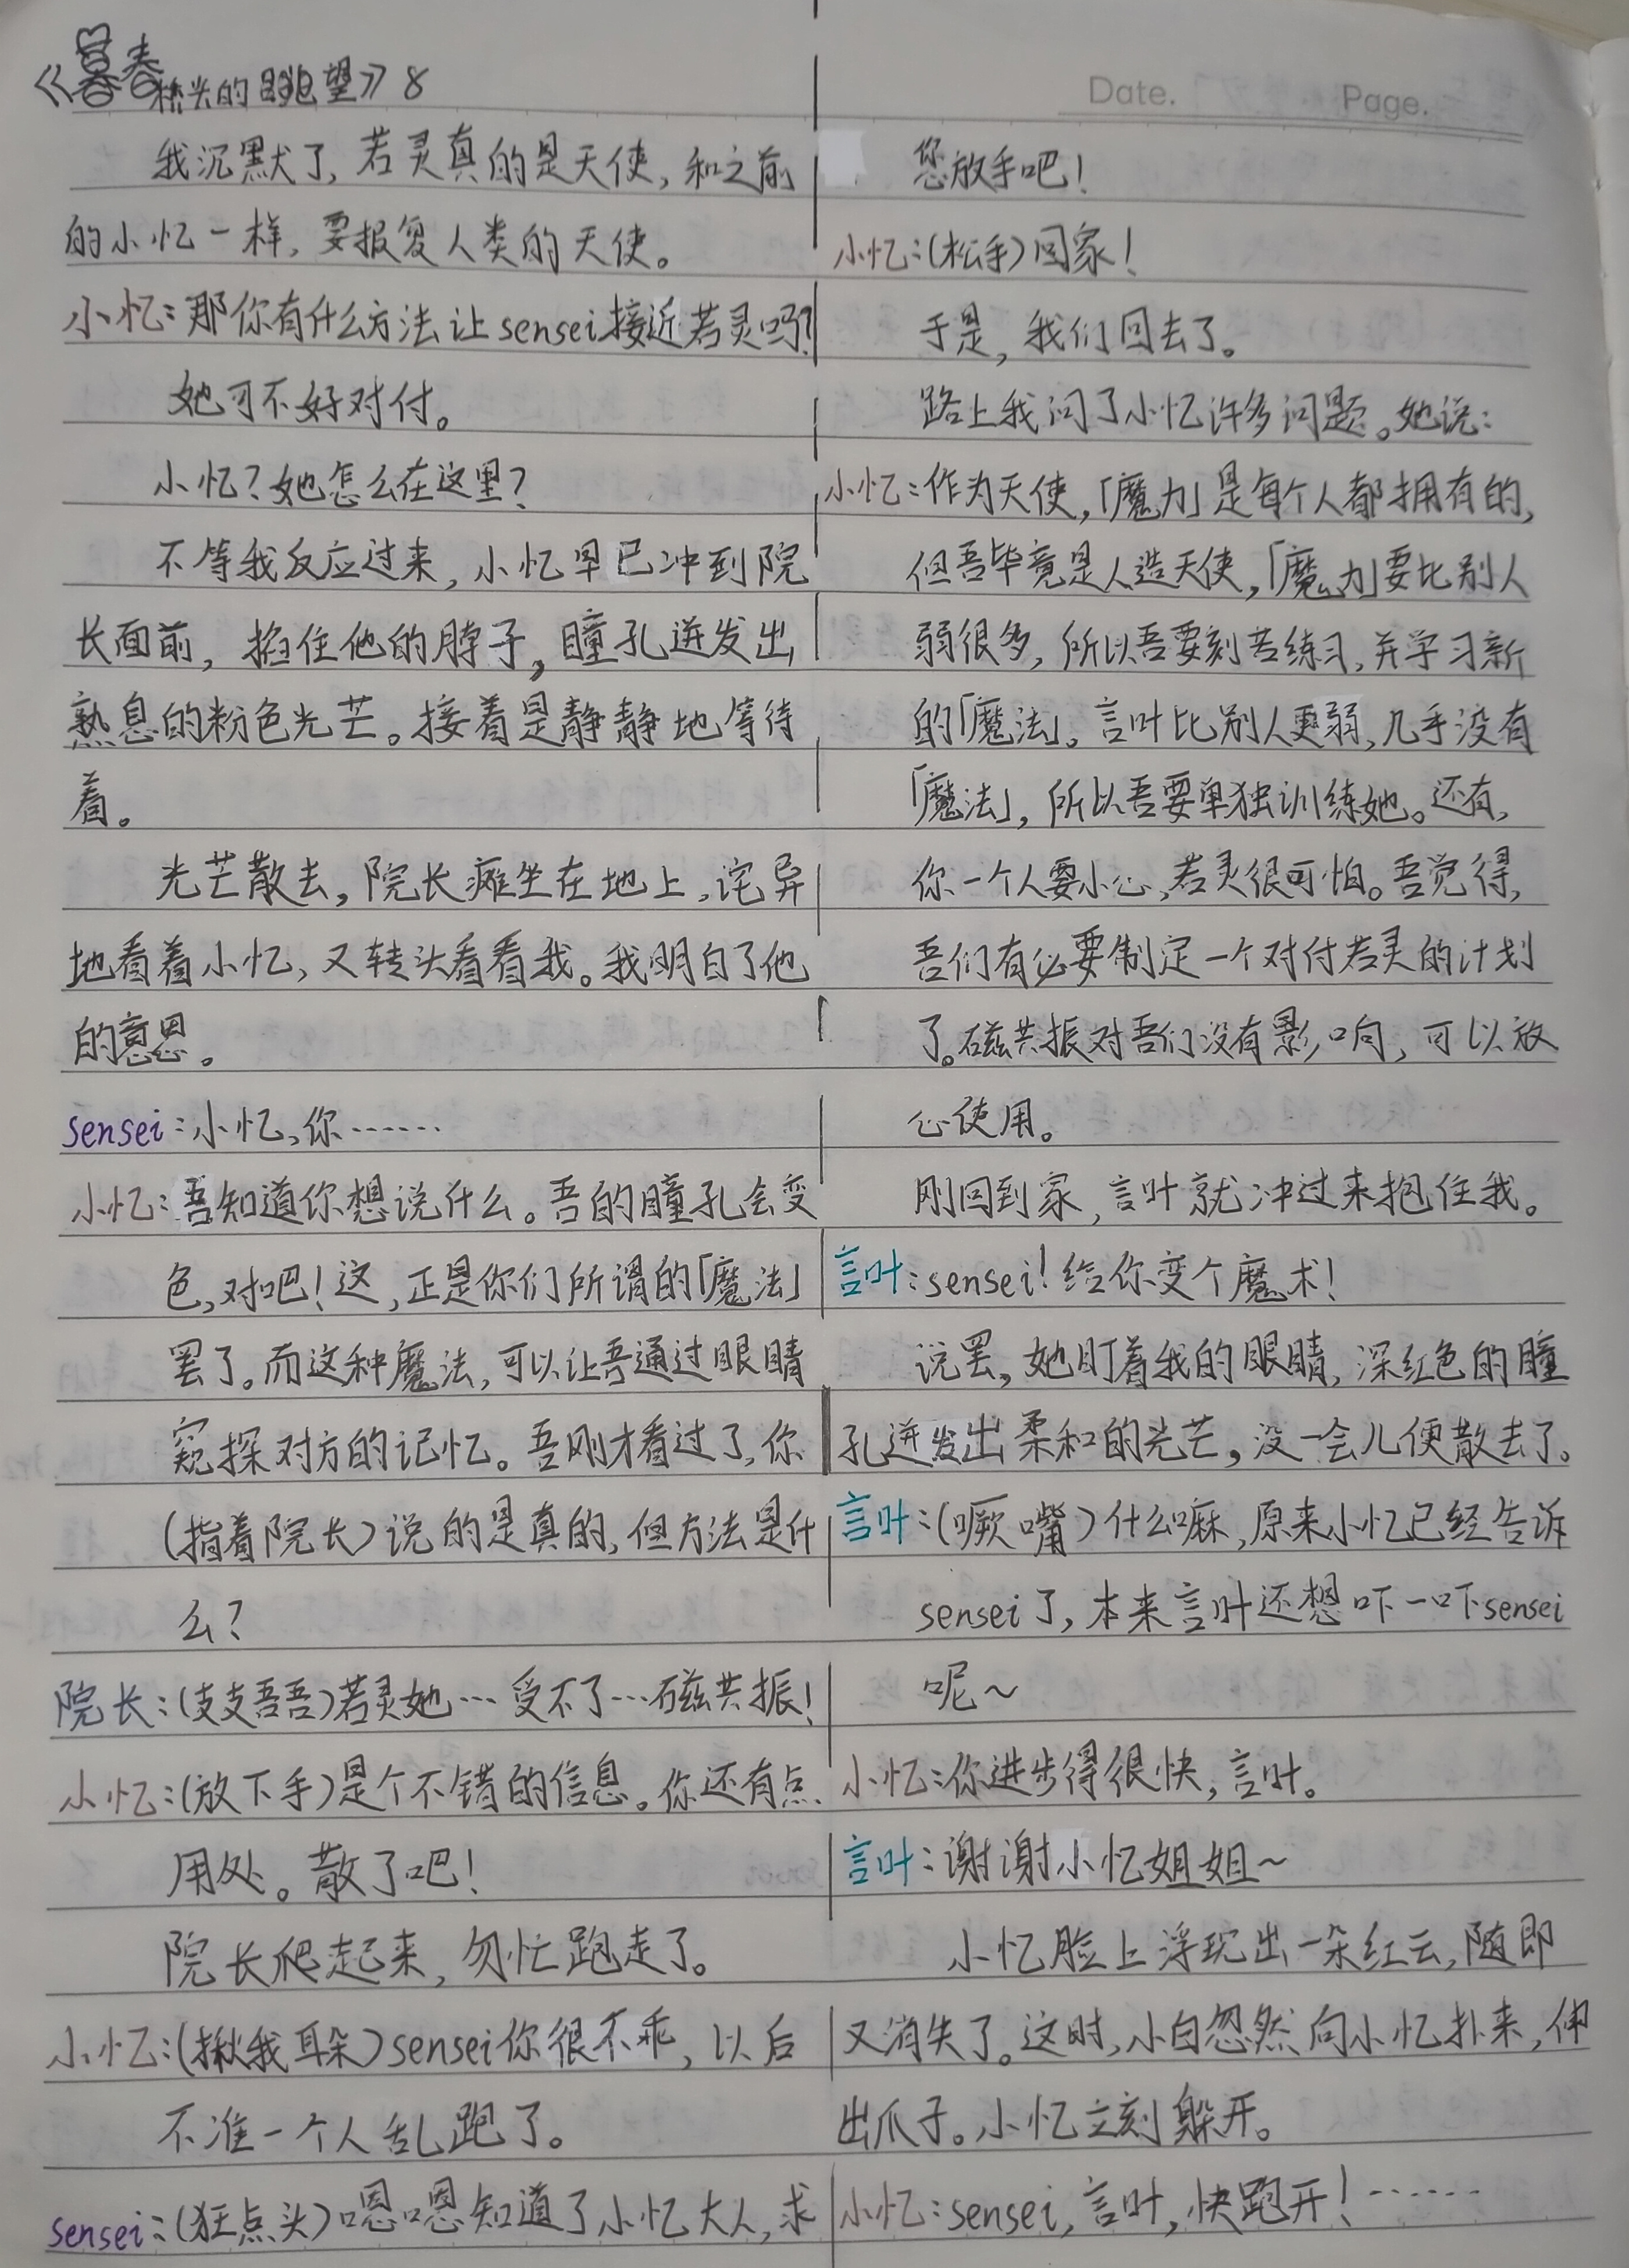 《暮春桥尖的眺望》8
Date.
Page.
我沉默了,若灵真的是天使,和之前
的小忆一样,要报复人类的天使。
小忆:那你有什么方法让sensei接近若灵吗?
她可不好对付。
小忆?她怎么在这里?
不等我反应过来,小忆早已冲到院
长面前,掐住他的脖子,瞳孔迸发出
熟息的粉色光芒。接着是静静地等待
着。
光芒散去,院长瘫坐在地上,诧异
地看着小忆,又转头看看我。我明白了他
的意思。
sensei:小忆,你……
小忆:吾知道你想说什么。吾的瞳孔会变
色,对吧!这,正是你们所谓的「魔法」
罢了。而这种魔法,可以让吾通过眼睛
窥探对方的记忆。吾刚才看过了,你
(指着院长)说的是真的,但方法是什
么?
院长:(支支吾吾)若灵她…受不了…磁共振!
小忆:(放下手)是个不错的信息。你还有点
用处。散了吧!
院长爬起来,匆忙跑走了。
小忆:(揪我耳朵)sensei你很不乖,以后
不准一个人乱跑了。
sensei:(狂点头)嗯嗯知道了小忆大人,求
您放手吧!
小忆:(松手)回家!
于是,我们回去了。
路上我问了小忆许多问题。她说:
小忆:作为天使,「魔力」是每个人都拥有的,
但吾毕竟是人造天使,「魔力」要比别人
弱很多,所以吾要刻苦练习,并学习新
的「魔法」。言叶比别人更弱,几乎没有
「魔法」,所以吾要单独训练她。还有,
你一个人要小心,若灵很可怕。吾觉得,
吾们有必要制定一个对付若灵的计划
了。磁共振对吾们没有影响,可以放
心使用。
刚回到家,言叶就冲过来抱住我。
言叶:sensei!给你变个魔术!
说罢,她盯着我的眼睛,深红色的瞳
孔迸发出柔和的光芒,没一会儿便散去了。
言叶:(噘嘴)什么嘛,原来小忆已经告诉
sensei了,本来言叶还想吓一吓sensei
呢~
小忆:你进步得很快,言叶。
言叶:谢谢小忆姐姐~
小忆脸上浮现出一朵红云,随即
又消失了。这时,小白忽然向小忆扑来,伸
出爪子。小忆立刻躲开。
小忆:sensei,言叶,快跑开!……